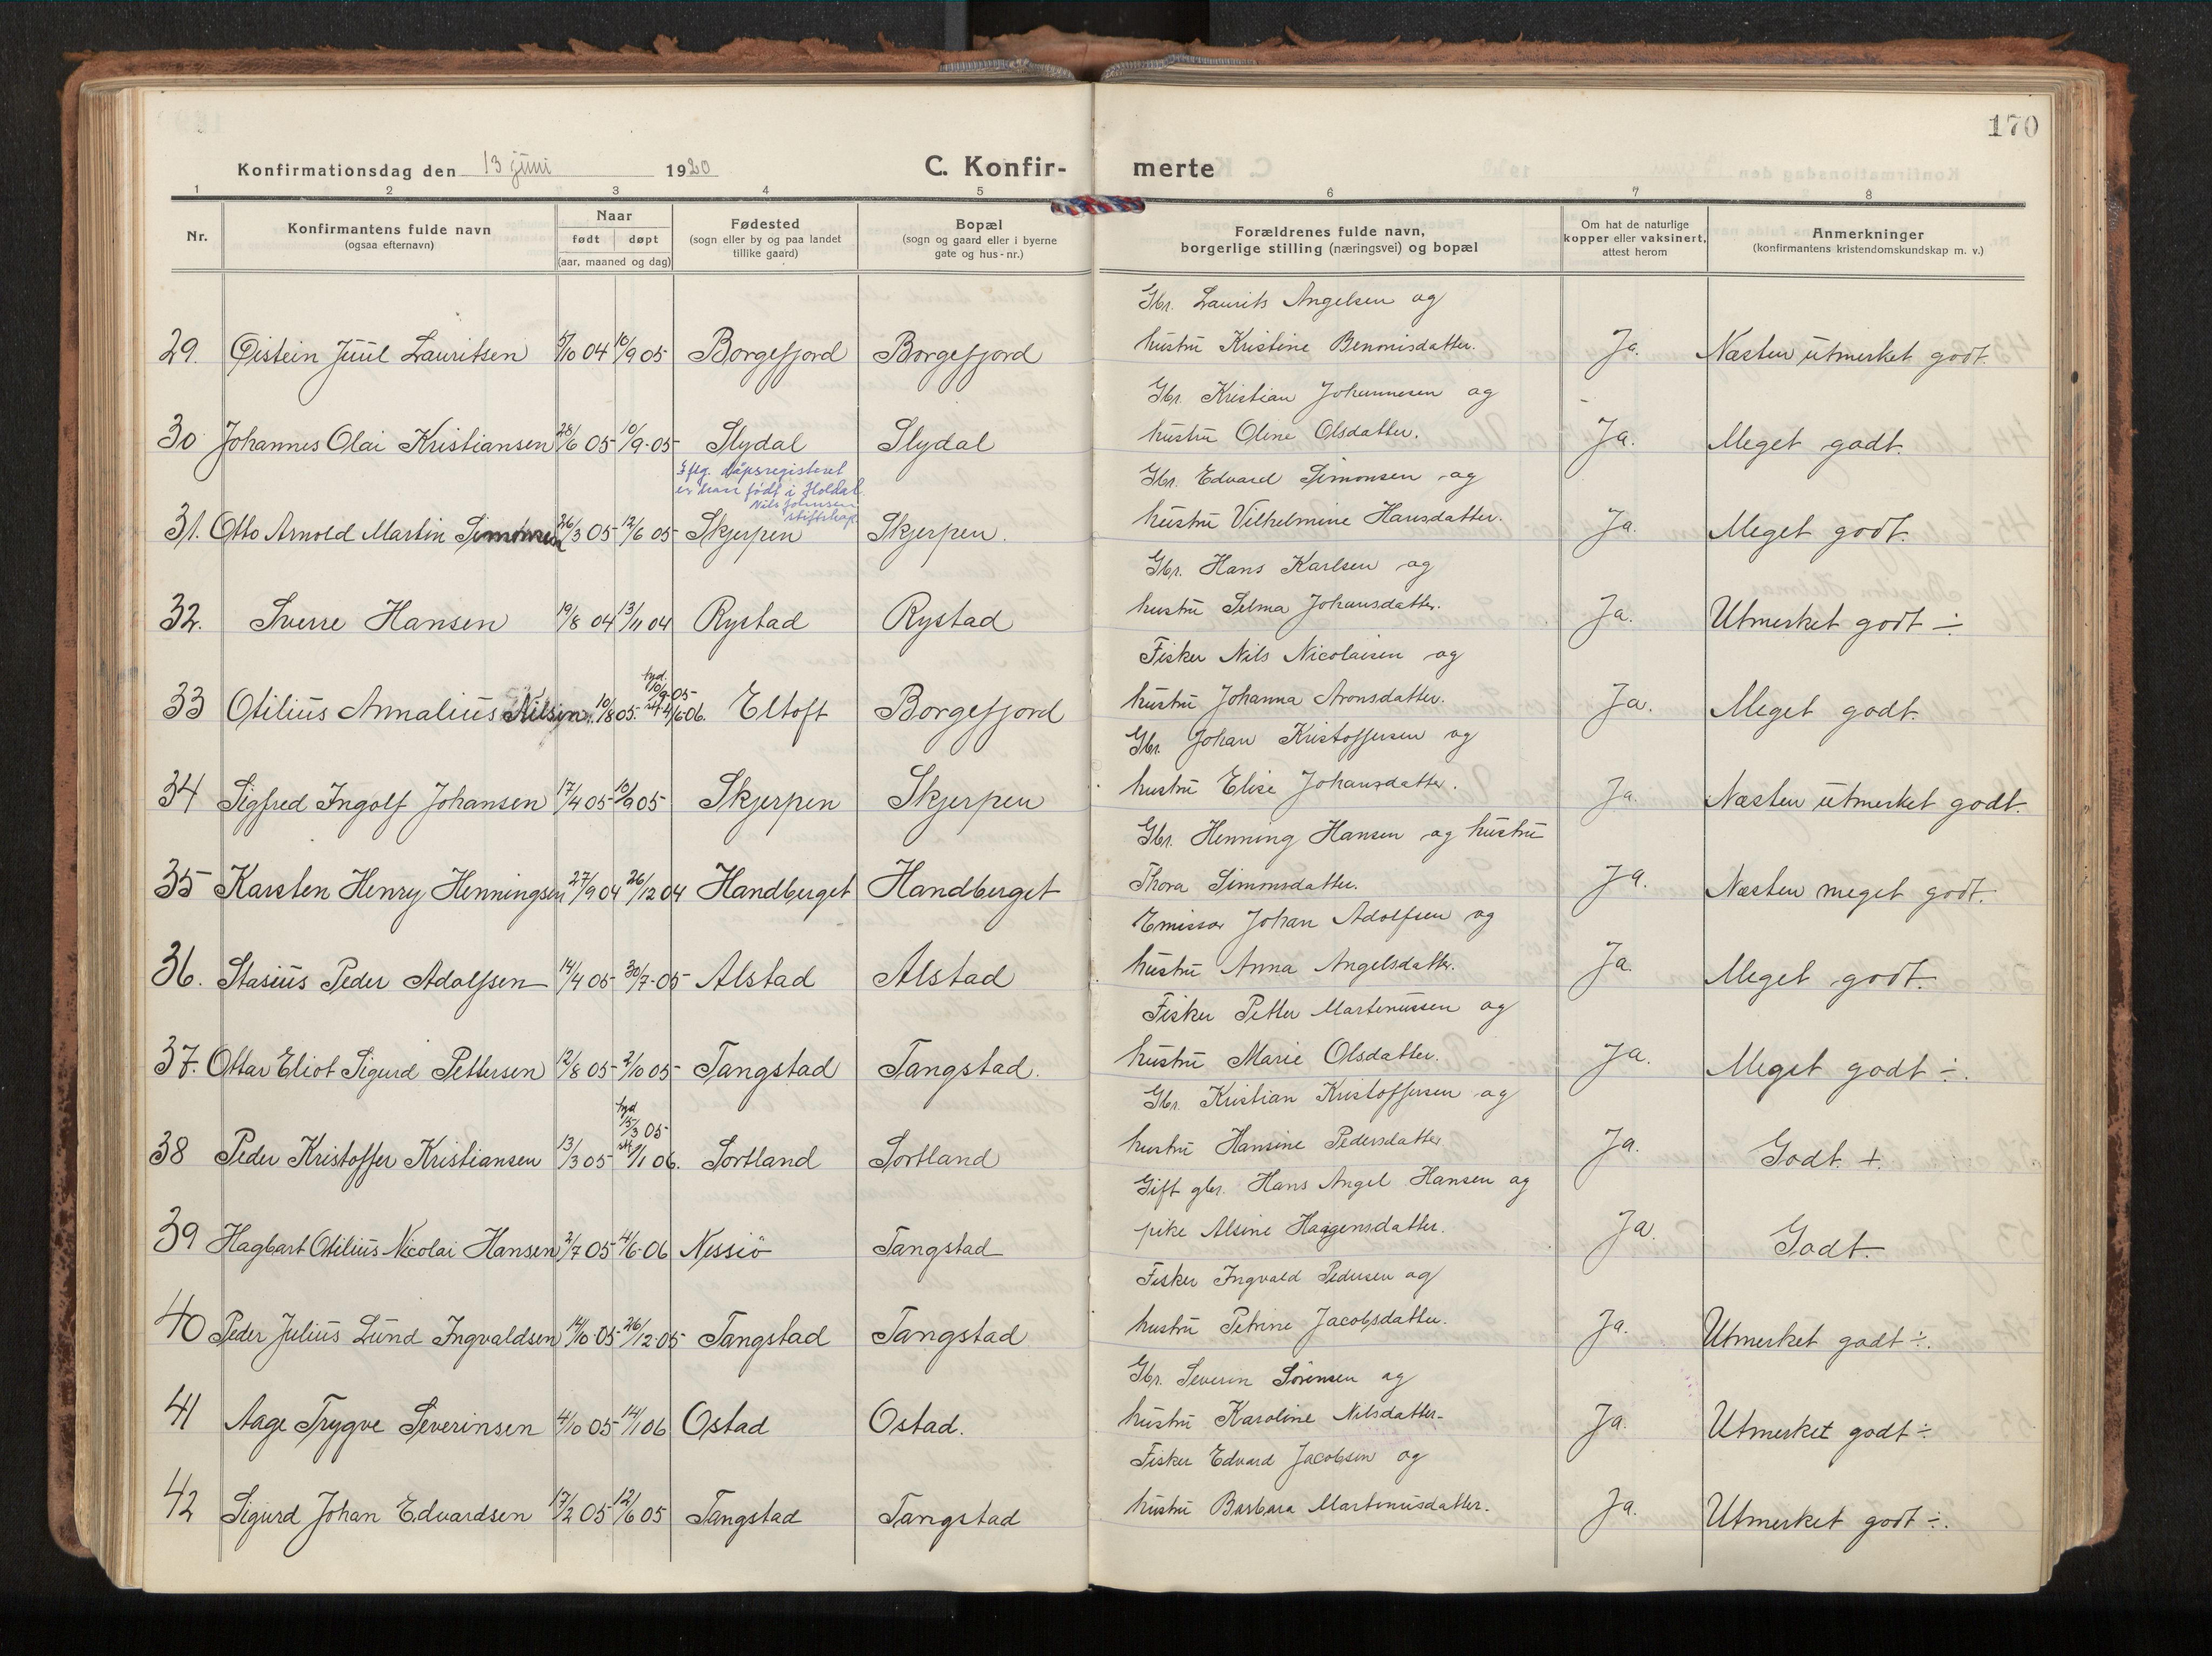 170
Konfirmationsdag den 13 juni 1920
C. Konfir- merte
1 2 3 4 5 6 7 8
Nr.
Konfirmantens fulde navn
(ogsaa efternavn)
Naar
født døpt
(aar, maaned og dag)
Fødested
(sogn eller by og paa landet
tillike gaard)
Bopæl
(sogn og gaard eller i byerne
gate og hus-nr.)
Forældrenes fulde navn,
borgerlige stilling (næringsvei) og bopæl
Om hat de naturlige
kopper eller vaksinert,
attest herom
Anmerkninger
(konfirmantens kristendomskundskap m. v.)
Gbr. Laurits Angelsen og
29. Øistein Juul Lauritsen 5/10 04 10/9 05 Borgefjord Borgefjord hustru Kristine Benonisdatter. Ja. Næsten utmerket godt.
Gbr. Kristian Johannesen og
30 Johannes Olai Kristiansen 28/6 05 10/9-05 Slydal Slydal hustru Oline Olsdatter. Ja. Meget godt.
Iflg. dåpsregisteret
er han født i Holdal.
Nils Johnsen
stiftskap.
Gbr. Edvard Simonsen og
31. Otto Arnold Martin Simonsen 26/3 05 12/6 05 Skjerpen Skjerpen. hustru Vilhelmine Hansdatter. Ja. Meget godt.
Gbr. Hans Karlsen og
32. Sverre Hansen 19/8 04 13/11 04 Rystad Rystad hustru Selma Johansdatter. Ja. Utmerket godt ÷
Fisker Nils Nicolaisen og
33 Otilius Annalius Nilsen. 10/8 05. 10/9-05 4/6-06. Eltoft Borgefjord hustru Johanna Aronsdatter. Ja. Meget godt.
Gbr. Johan Kristoffersen og
34 Sigfred Ingolf Johansen 17/4 05 10/9 05 Skjerpen Skjerpen hustru Elise Johansdatter. Ja. Næsten utmerket godt.
Gbr. Henning Hansen og hustru
35 Karsten Henry Henningsen 27/9 04 26/12 04 Handberget Handberget Thora Simonsdatter. Ja. Næsten meget godt.
Emissær Johan Adolfsen og
36. Stasius Peder Adolfsen 14/4 05 30/7-05 Alstad Alstad hustru Anna Angelsdatter. Ja. Meget godt.
Fisker Petter Martinussen og
37. Ottar Eliot Sigurd Pettersen 12/8 05 2/10 05 Tangstad Tangstad. hustru Marie Olsdatter. Ja. Meget godt ÷.
Gbr. Kristian Kristoffersen og
38 Peder Kristoffer Kristiansen 13/3 05 15/3 05 /1 06. Sortland Sortland hustru Hansine Pedersdatter Ja. Godt +.
Gift gbr. Hans Angel Hansen og
39 Hagbart Otilius Nicolai Hansen 2/7 05 4/6-06 Nessiö Tangstad pike Alsine Haagensdatter. Ja. Godt.
Fisker Ingvald Pedersen og
40 Peder Julius Lund Ingvaldsen 14/10-05 26/12-05 Tangstad Tangstad hustru Petrine Jacobsdatter. Ja. Utmerket godt ÷.
Gbr. Severin Sörensen og
41 Aage Trygve Severinsen 4/10 05 14/1 06 Ostad Ostad. hustru Karoline Nilsdatter. Ja. Utmerket godt ÷
Fisker Edvard Jacobsen og
42 Sigurd Johan Edvardsen 17/2 05 12/6 05 Tangstad Tangstad hustru Barbara Martinusdatter. Ja. Utmerket godt ÷.